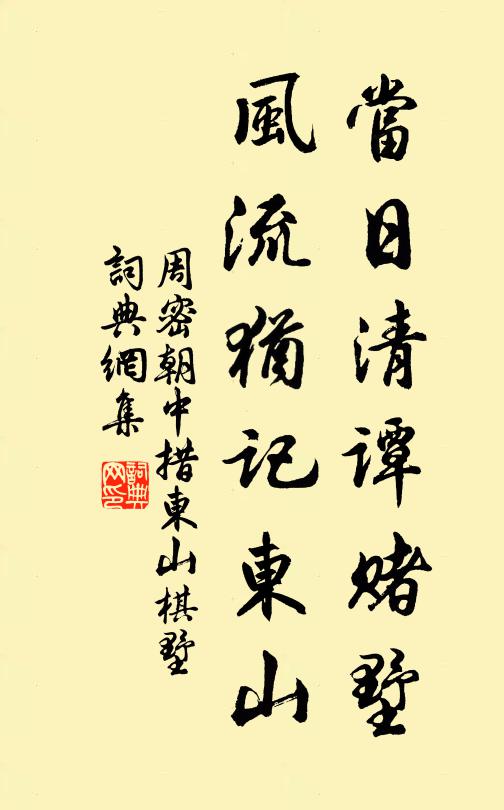 當日清譚賭墅
風流猶記東山
周密朝中措東山棋墅
詞典網集
詞典網印